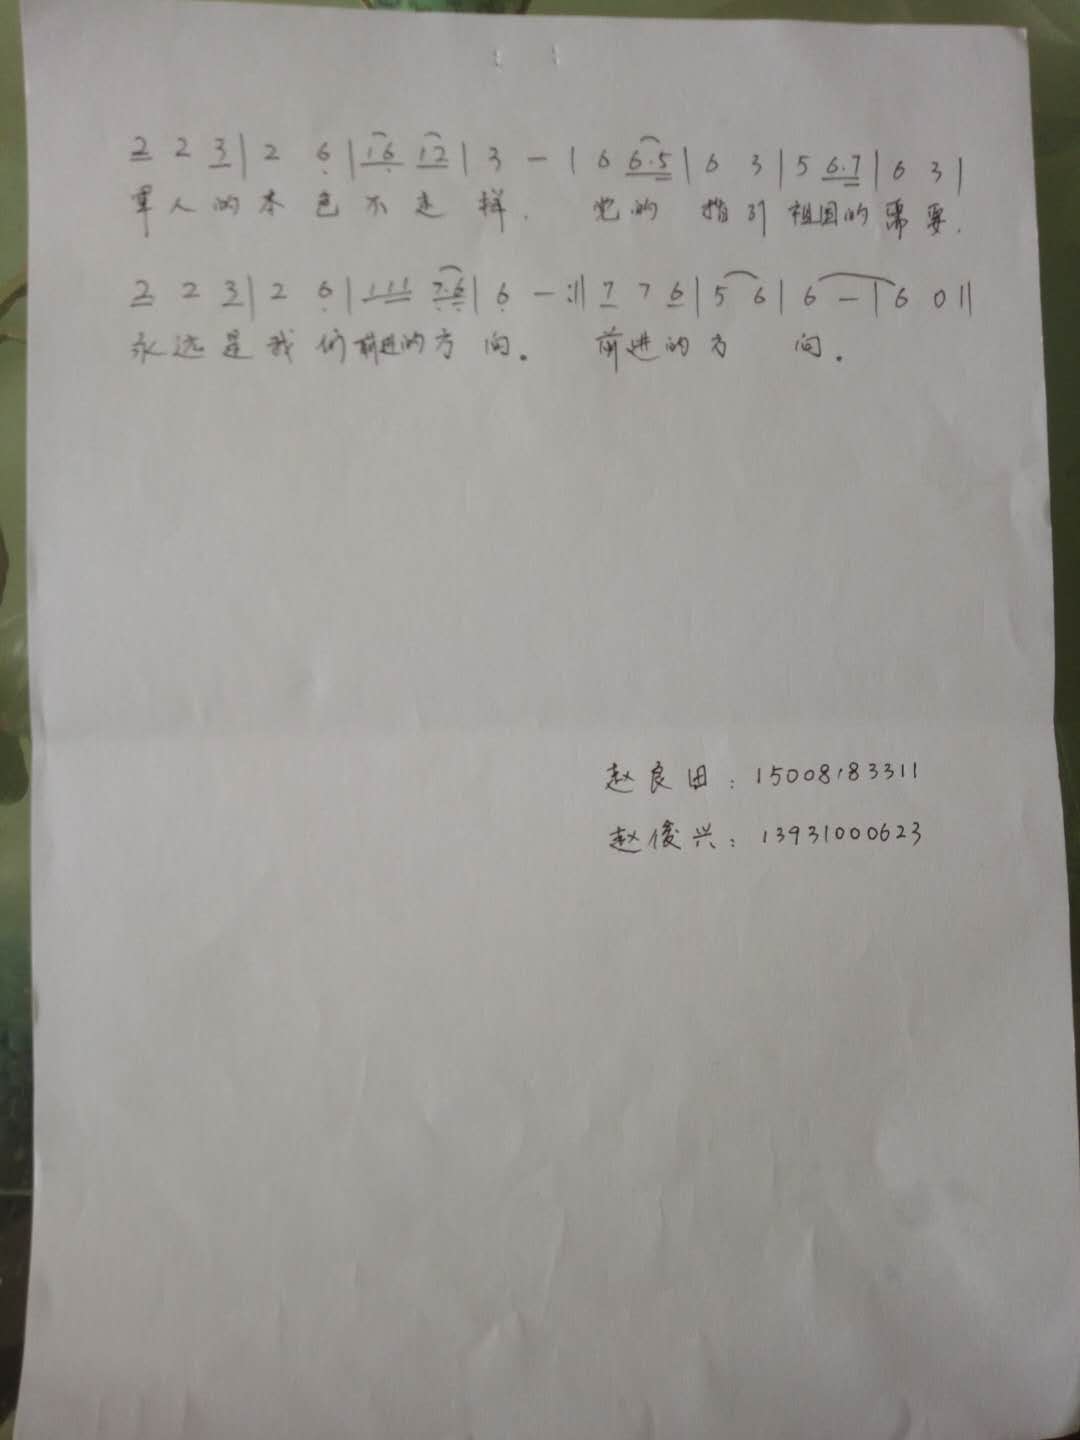 2 2 3 | 2 6 | 1 6 1 2 | 3 - | 6 6·5 | 6 3 | 5 6·7 | 6 3 |
军人的本色不走样. 党的指引祖国的需要.
2 2 3 | 2 6 | 1 1 1 7·6 | 6 - :|| 7 7 6 | 5 6 | 6 - | 6 0 ||
永远是我们前进的方向. 前进的方向.
赵良田: 15008183311
赵俊兴: 13931000623